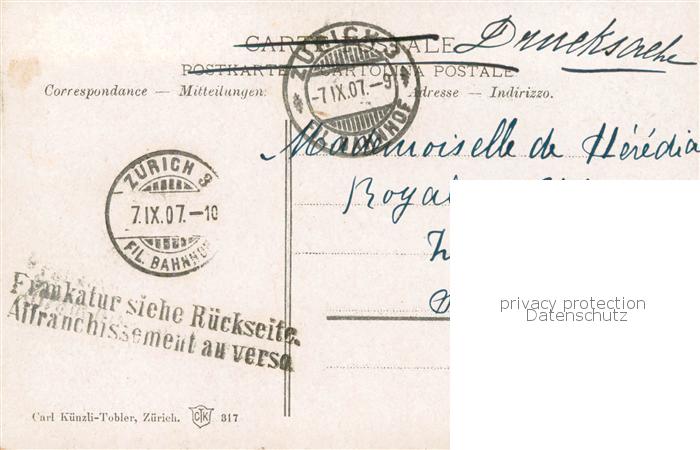 CARTE POSTALE Drucksache
POSTKARTE CARTOLINA POSTALE
Correspondance — Mitteilungen. Adresse — Indirizzo.
ZÜRICH 3
-7.IX.07.-9
FIL. BAHNHOF
Mademoiselle de Hérédia
Royal
ZÜRICH 3
7.IX.07.-10
FIL. BAHNHOF
Frankatur siehe Rückseite.
Affranchissement au verso.
privacy protection
Datenschutz
Carl Künzli-Tobler, Zürich. CTK 317